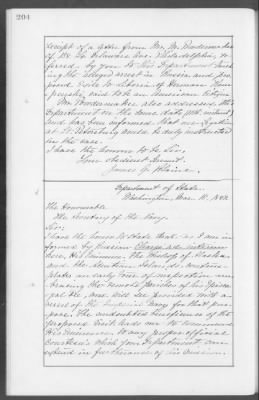 204
receipt of a letter from Mr. M. Vondernacker
of No. 40 Delaware Ave. Philadelphia, re-
ferred by you to this Department touch-
ing the alleged arrest in Russia and pro-
posed exile to Siberia of Herman
said to be an American citizen.
Mr. Vondernacker also addressed the
Department on the same date
and has been informed that our Legation
at St. Petersburg would be duly instructed
in the case.
I have the honor to be Sir,
Your obedient servant,
James G. Blaine.
Department of State
Washington, 11, 1882
The Honorable
The Secretary of the Navy.
Sir:
I have the honor to state that as I am in-
formed by Russian Chargé ad interim
here, His Eminence, the Bishop of Alaska
and the Aleutian Islands, contem-
plates an early tour of inspection em-
bracing the remote parishes of his Episco-
pal See, and will be provided with a
vessel of the Imperial Navy for that pur-
pose. The undoubted usefulness of the
proposed visit leads me to commend
His Eminence to any proper official
courtesies which your Department can
extend in furtherance of his mission.